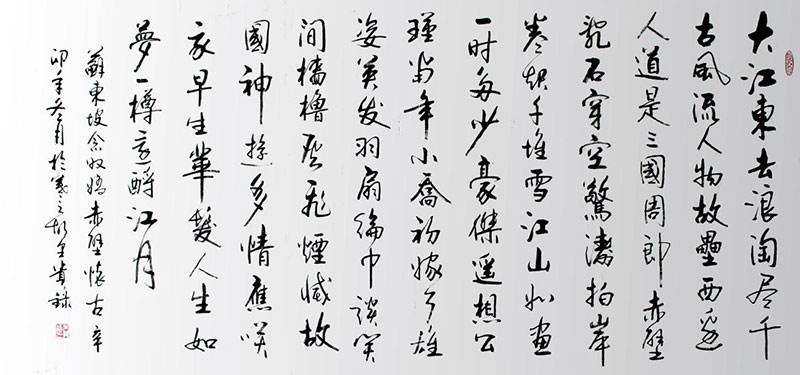 大江東去浪淘尽千
古風流人物故壘西邊
人道是三國周郎赤壁
亂石穿空驚濤拍岸
卷起千堆雪江山如畫
一时多少豪傑遥想公
瑾当年小喬初嫁了雄
姿英发羽扇綸巾談笑
間檣櫓灰飛煙滅故
國神遊多情應笑
我早生華髮人生如
夢一樽還酹江月
蘇東坡念奴嬌赤壁懷古辛
卯年冬月於